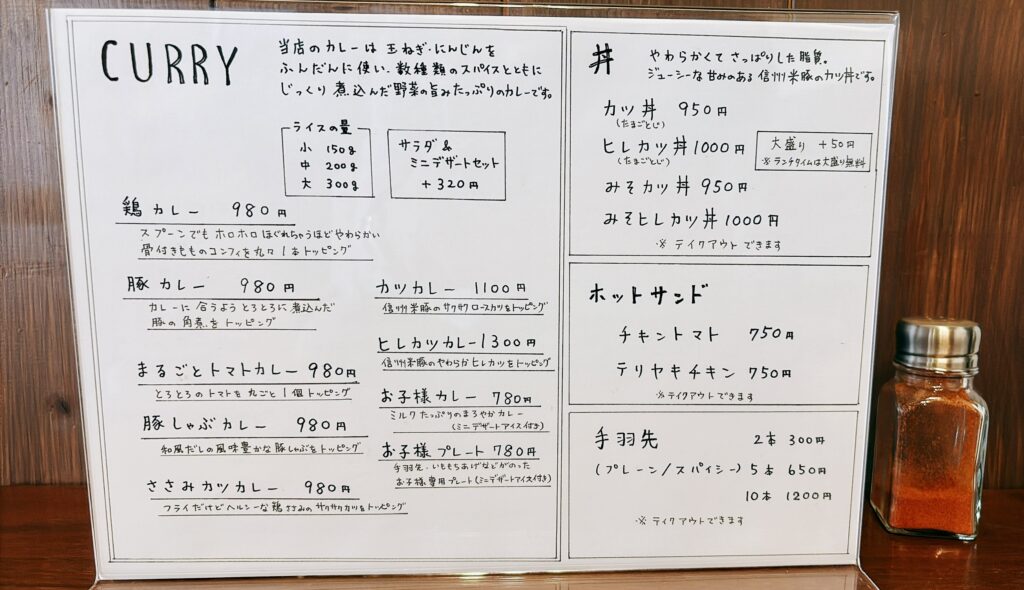 CURRY
当店のカレーは 玉ねぎ・にんじんを
ふんだんに使い、数種類のスパイスとともに
じっくり 煮込んだ野菜の旨みたっぷりのカレーです。
ライスの量
小 150g
中 200g
大 300g
サラダ&
ミニデザートセット
+320円
鶏カレー 980円
スプーンでも ホロホロ ほぐれちゃうほどやわらかい
骨付きもものコンフィを丸々1本トッピング
豚カレー 980円
カレーに合うよう とろとろに煮込んだ
豚の角煮をトッピング
まるごとトマトカレー 980円
とろとろのトマトを丸ごと1個トッピング
豚しゃぶカレー 980円
和風だしの風味豊かな豚しゃぶをトッピング
ささみカツカレー 980円
フライだけどヘルシーな鶏ささみのサクサクカツをトッピング
カツカレー 1100円
信州米豚のサクサクロースカツをトッピング
ヒレカツカレー 1300円
信州米豚のやわらかヒレカツをトッピング
お子様カレー 780円
ミルクたっぷりのまろやかカレー
(ミニデザートアイス付き)
お子様プレート 780円
手羽先・いももちあげなどがのった
お子様専用プレート(ミニデザートアイス付き)
丼
やわらかくて さっぱりした脂質。
ジューシーな甘みのある 信州米豚のカツ丼です。
カツ丼 950円
(たまごとじ)
ヒレカツ丼 1000円
(たまごとじ)
大盛り +50円
※ランチタイムは大盛り無料
みそカツ丼 950円
みそヒレカツ丼 1000円
※ テイクアウトできます
ホットサンド
チキントマト 750円
テリヤキチキン 750円
※テイクアウトできます
手羽先 2本 300円
(プレーン/スパイシー) 5本 650円
10本 1200円
※テイクアウトできます